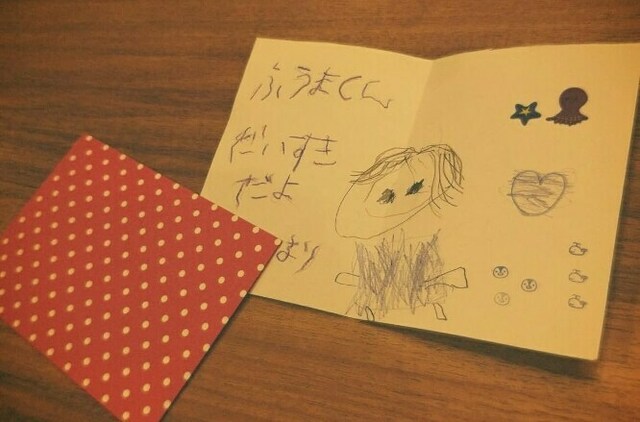 ふうまくん
だいすき
だよ